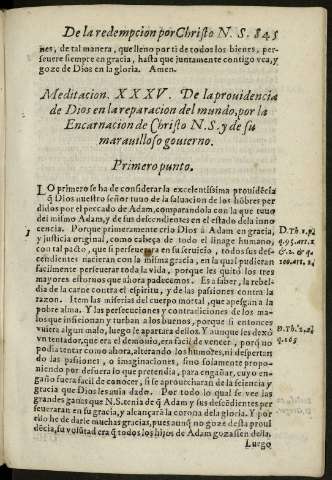 De la redempcion por Christo N. S. 845
nes, de tal manera, que lleno por ti de todos los bienes, per-
seuere siempre en gracia, hasta que juntamente contigo vea, y
goze de Dios en la gloria. Amen.
Meditacion. XXXV. De la prouidencia
de Dios en la reparacion del mundo, por la
Encarnacion de Christo N.S. y de su
marauilloso gouierno.
Primero punto.
LO primero se ha de considerar la excelentissima prouidẽcia
q̃ Dios nuestro señor tuuo de la saluacion de los hõbres per
didos por el peccado de Adam, comparandola con la que tuuo
del mismo Adam, y de sus descendientes en el estado dela inno
cencia. Porque primeramente crio Dios à Adam en gracia, D.Th.1.p.
1 y justicia original, como cabeça de todo el linage humano, q.95.art.1
con tal pacto, que si perseueraua en su seruicio, todos sus des- & 2. & q.
cendientes nacerian con la misma gracia, en la qual pudieran 100.art.1.
facilmente perseuerar toda la vida, porque les quitò los tres
mayores estoruos que ahora padecemos. Esa saber, la rebel-
dia de la carne contra el espiritu, y de las passiones contra la
razon. Item las miserias del cuerpo mortal, que apesgan a la
pobre alma. Y las persecuciones y contradiciones de los ma-
los que inficionan y turban a los buenos, porque si entonces
vuiera algun malo, luego le apartara dellos. Y aunque les dexò D.Th.2.2.
vn tentador, que era el demonio, era facil de vencer, porq̃ no q.165
podia tentar como ahora, alterando los humores, ni despertan
do las passiones, o imaginaciones, sino solamente proponie-
niendo por defuera lo que pretendia, para engañar, cuyo en-
gaño fuera facil de conocer, si se aprouecharan de la sciencia y
gracia que Dios les auia dado. Por todo lo qual se vee las
grandes ganas que N.S. tenia de q̃ Adam y sus descẽdientes per
seueraran en su gracia, y alcançarà la corona dela gloria. Y por
ello he de darle muchas gracias, pues aunq̃ no goze desta proui
dẽcia, su volũtad era q̃ todos los hijos de Adam gozassen della.
Luego